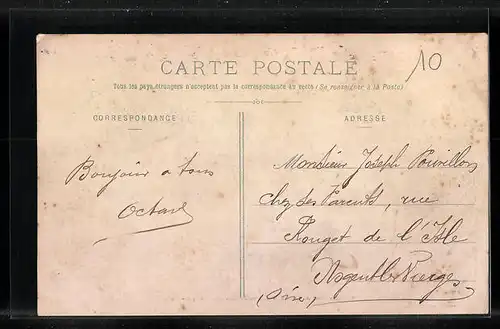 CARTE POSTALE
10
Tous les pays étrangers n'acceptent pas la correspondance au recto (Se renseigner à la Poste)
CORRESPONDANCE
ADRESSE
Bonjour a tous
Octave
Monsieur Joseph Pouvillon
chez ses Parents, rue
Rouget de l'Isle
(Oise)